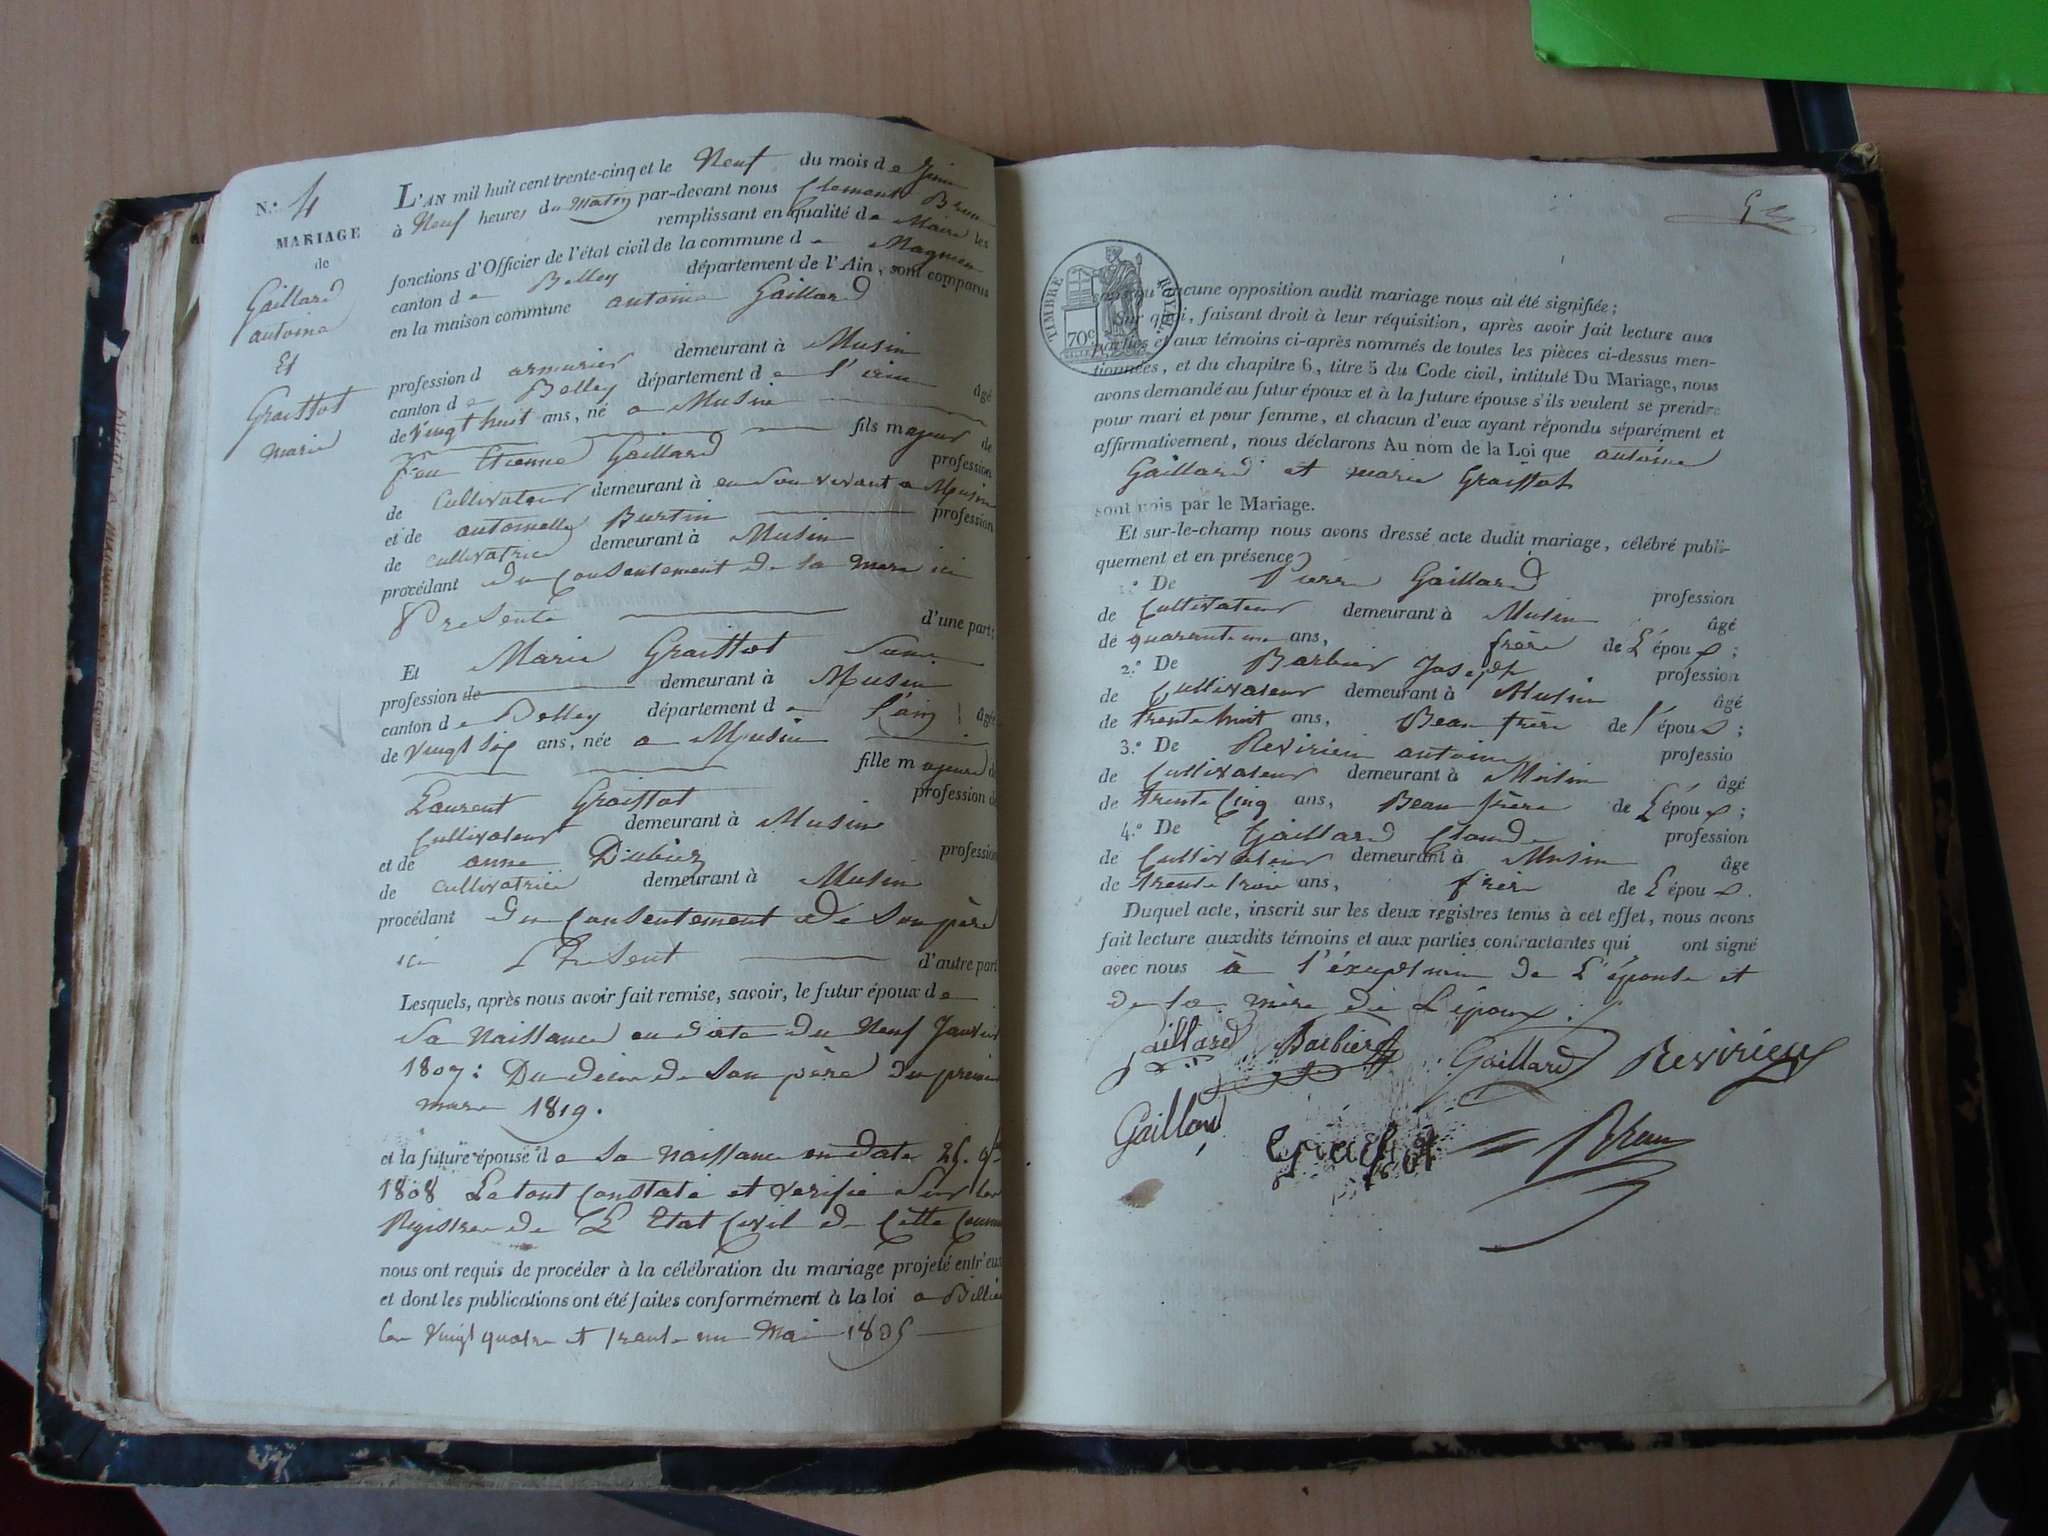 N.° 4
MARIAGE
de
Gaillard
antoine
Et
Graissot
marie
L'AN mil huit cent trente-cinq et le Neuf du mois de Juin
à Neuf heures du matin par-devant nous Clement Brun
remplissant en qualité de Maire les
fonctions d'Officier de l'état civil de la commune de Magnieu
canton de Belley département de l'Ain, sont comparus
en la maison commune antoine Gaillard
profession d armurier demeurant à Musin
canton de Belley département de l'ain âgé
de vingt huit ans, né a Musin
fils majeur de
feu Etienne Gaillard profession
de Cultivateur demeurant à en son vivant a Musin
et de antoinette Burtin profession
de cultivatrice demeurant à Musin
procédant du Consentement de sa mere ici
Presente d'une part;
Et Marie Graissot sans
profession de demeurant à Musin
canton de Belley département de l'ain âgée
de vingt six ans, née a Musin
fille majeure de
Laurent Graissot profession de
Cultivateur demeurant à Musin
et de anne Dubiez profession
de cultivatrice demeurant à Musin
procédant du Consentement de son père
ici Present d'autre part
Lesquels, après nous avoir fait remise, savoir, le futur époux de
sa Naissance en date du Neuf Janvier
1807: Du décès de son père du premier
mars 1819.
et la future épouse de sa naissance en date 25.
1808 Le tout Constaté et verifié sur les
Registres de L'Etat Civil de Cette Commune
nous ont requis de procéder à la célébration du mariage projeté entr'eux
et dont les publications ont été faites conformément à la loi a Billieu
les vingt quatre et trente un Mai 1835
TIMBRE ROYAL
70c
aucune opposition audit mariage nous ait été signifiée;
Sur quoi, faisant droit à leur réquisition, après avoir fait lecture aux
parties et aux témoins ci-après nommés de toutes les pièces ci-dessus men-
tionnées, et du chapitre 6, titre 5 du Code civil, intitulé Du Mariage, nous
avons demandé au futur époux et à la future épouse s'ils veulent se prendre
pour mari et pour femme, et chacun d'eux ayant répondu séparément et
affirmativement, nous déclarons Au nom de la Loi que antoine
Gaillard et marie Graissot
sont unis par le Mariage.
Et sur-le-champ nous avons dressé acte dudit mariage, célébré publi-
quement et en présence
1.° De Pierre Gaillard profession
de Cultivateur demeurant à Musin âgé
de quarante un ans, frère de L'époux;
2.° De Barbier Joseph profession
de Cultivateur demeurant à Musin âgé
de trente huit ans, Beau frère de l'époux;
3.° De Revirieu antoine professio
de Cultivateur demeurant à Musin âgé
de trente Cinq ans, Beau frère de L'époux;
4.° De Gaillard Claude profession
de Cultivateur demeurant à Musin âge
de trente trois ans, frère de L'époux.
Duquel acte, inscrit sur les deux registres tenus à cet effet, nous avons
fait lecture auxdits témoins et aux parties contractantes qui ont signé
avec nous à l'éxception de L'épouse et
de la mère de L'époux.
Gaillard Barbier Gaillard Revirieu
Gaillard Graissot Brun